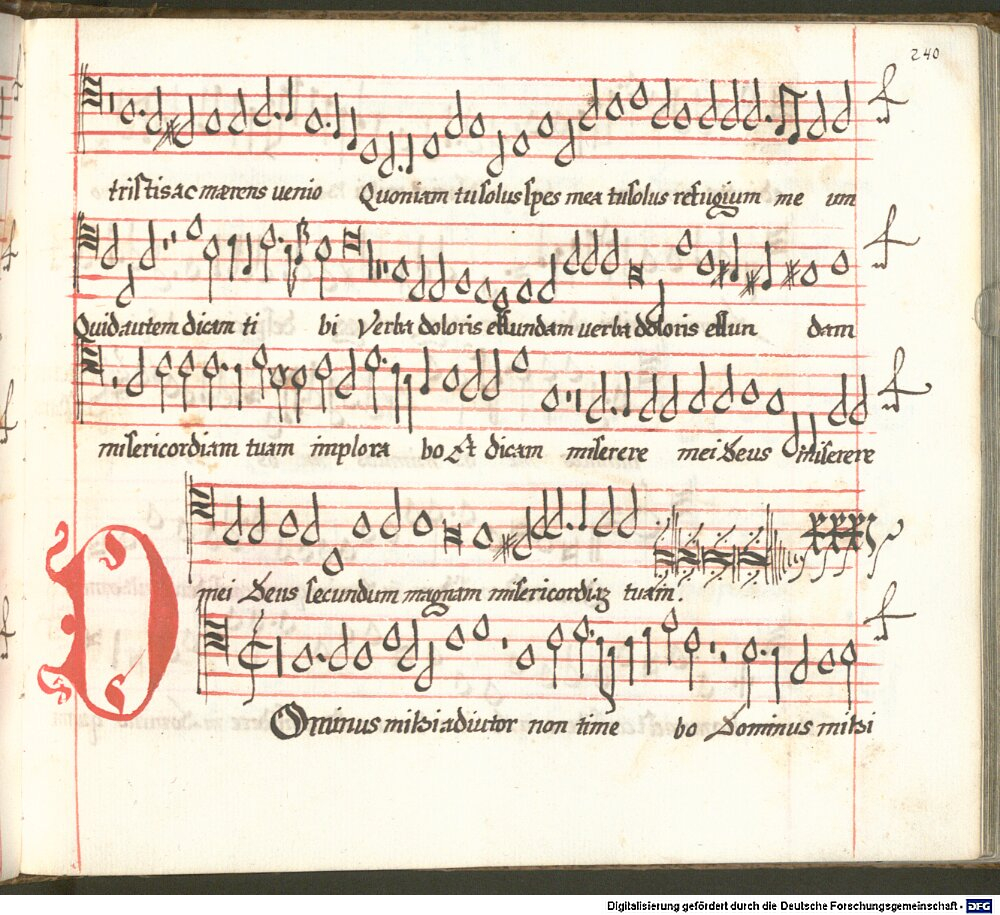 240
tristis ac mærens uenio Quoniam tu solus spes mea tu solus refugium me um
Quid autem dicam ti bi Verba doloris effundam uerba doloris effun dam
misericordiam tuam implora bo Et dicam miserere mei Deus miserere
mei Deus secundum magnam misericordiã tuam.
DOminus mihi adiutor non time bo Dominus mihi
Digitalisierung gefördert durch die Deutsche Forschungsgemeinschaft - DFG